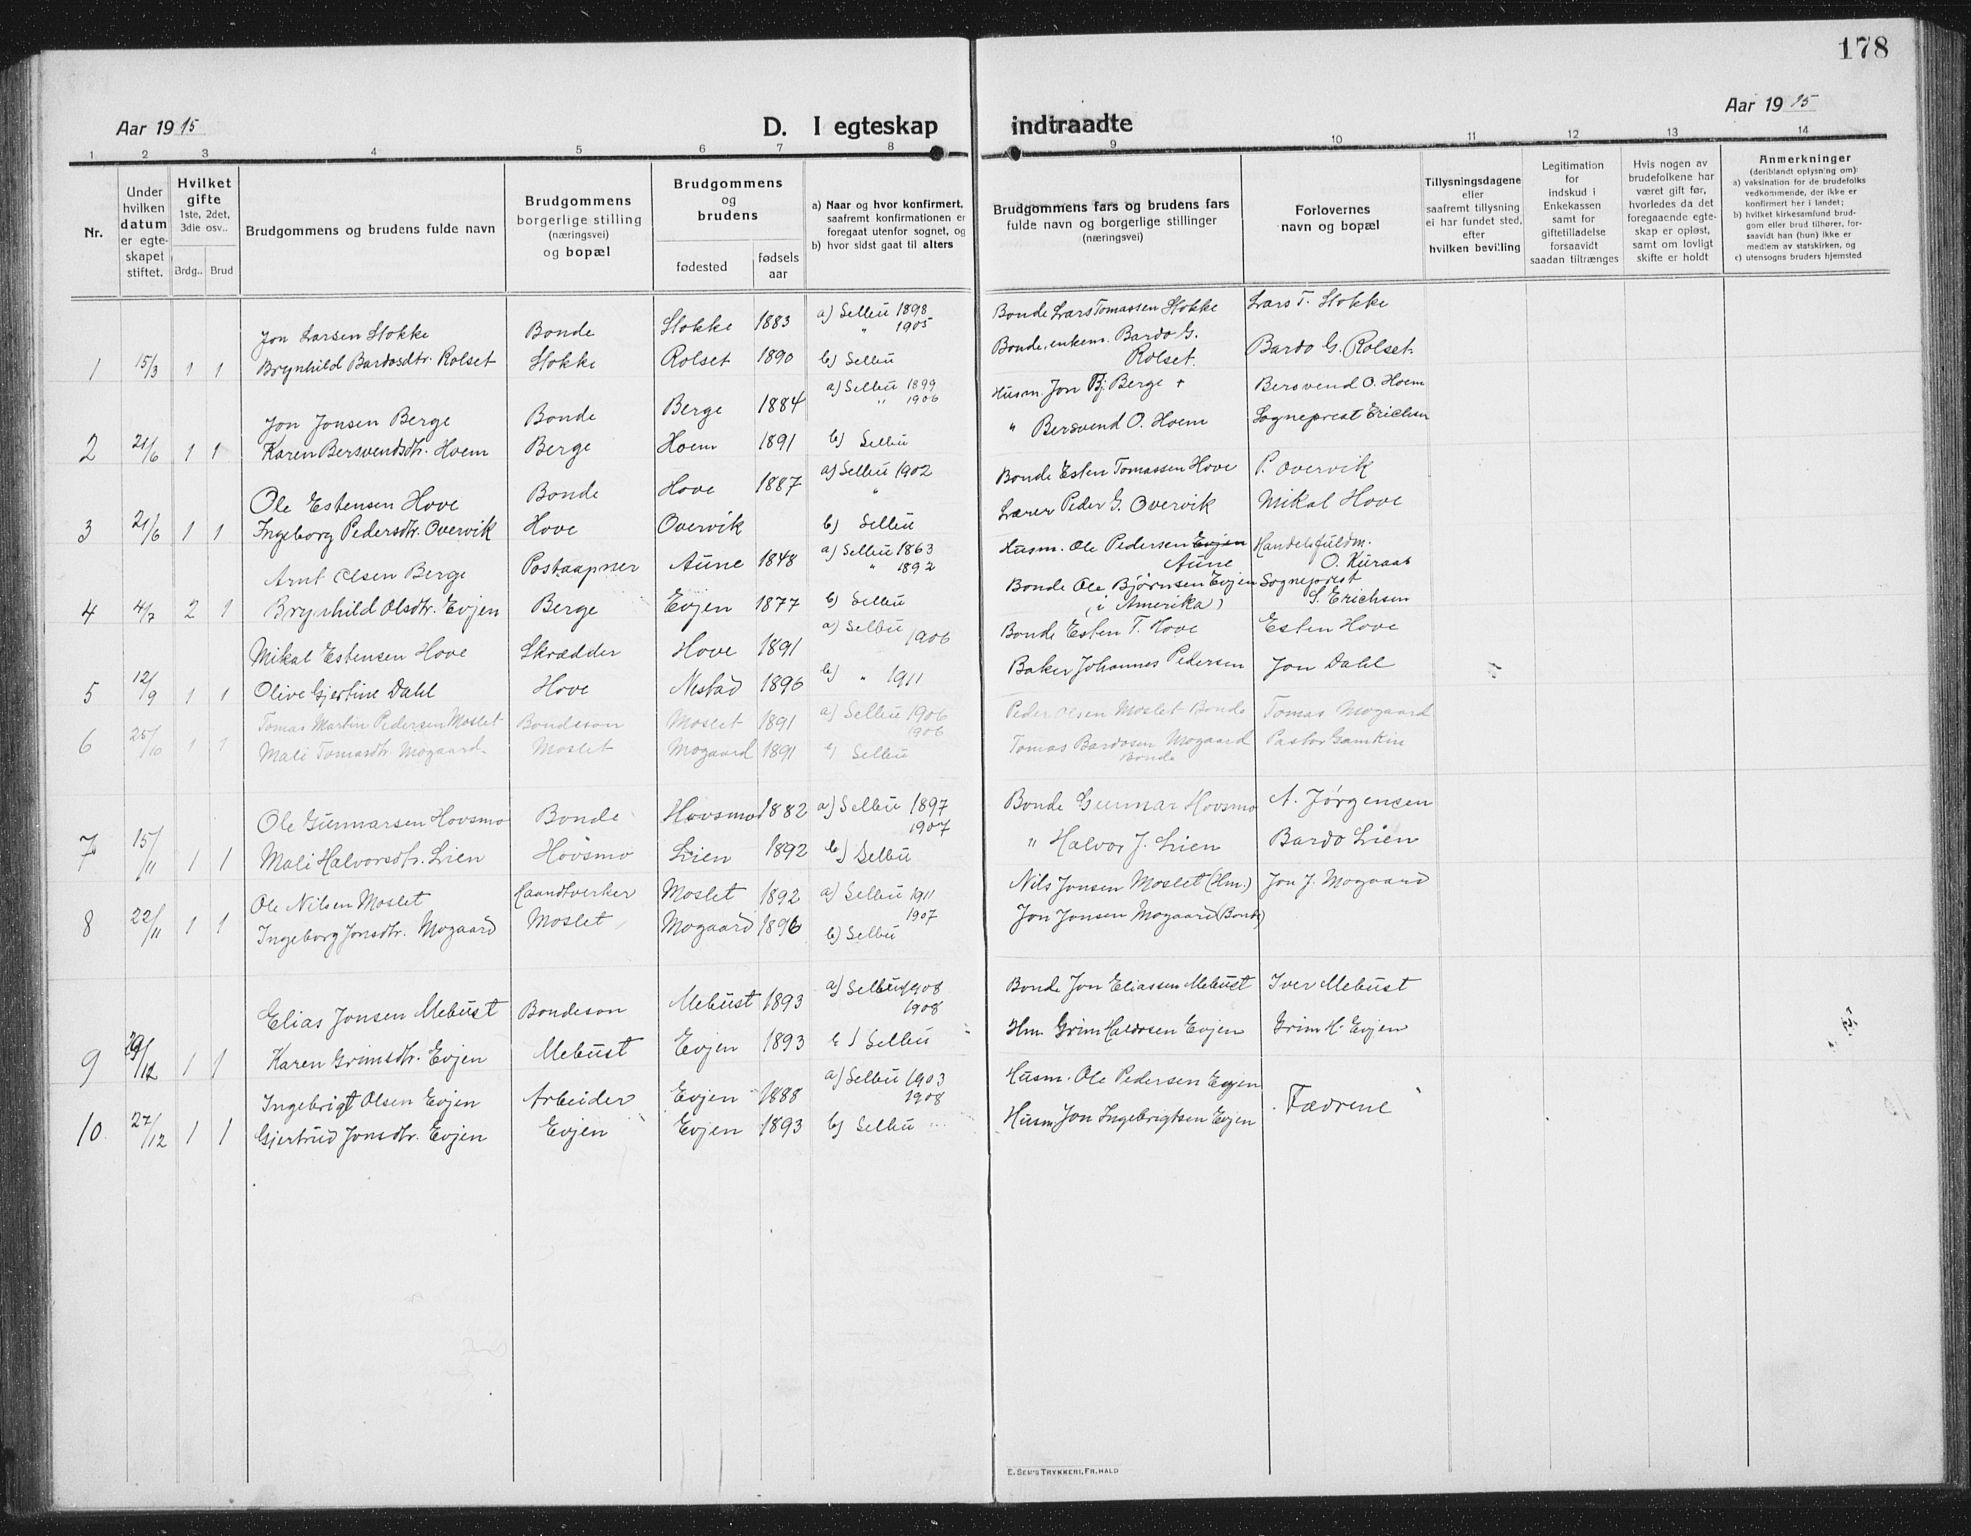 178
Aar 1915
D. I egteskap
indtraadte
Aar 1915
1 2 3 4 5 6 7 8 9 10 11 12 13 14
Nr.
Under hvilken datum er egteskapet stiftet.
Hvilket gifte
1ste, 2det, 3die osv..
Brdg.. Brud
Brudgommens og brudens fulde navn
Brudgommens borgerlige stilling (næringsvei) og bopæl
Brudgommens og brudens
fødested
fødsels aar
a) Naar og hvor konfirmert, saafremt konfirmationen er foregaat utenfor sognet, og
b) hvor sidst gaat til alters
Brudgommens fars og brudens fars fulde navn og borgerlige stillinger (næringsvei)
Forlovernes navn og bopæl
Tillysningsdagene eller saafremt tillysning ei har fundet sted, efter hvilken bevilling
Legitimation for indskud i Enkekassen samt for giftetilladelse forsaavidt saadan tiltrænges
Hvis nogen av brudefolkene har været gift før, hvorledes da det foregaaende egteskap er opløst, samt om lovligt skifte er holdt
Anmerkninger
(deriblandt oplysning om):
a) vaksination for de brudefolks vedkommende, der ikke er konfirmert her i landet;
b) hvilket kirkesamfund brudgom eller brud tilhører, forsaavidt han (hun) ikke er medlem av statskirken, og
c) utensogns bruders hjemsted
Jon Larsen Stokke Bonde Stokke 1883 a) Selbu 1898 Bonde Lars Tomassen Stokke Lars T. Stokke
" 1905
1 15/3 1 1 Brynhild Bardosdtr. Rolset Stokke Rolset 1890 b) Selbu Bonde, enkem. Bardo G. Rolset. Bardo G. Rolset.
Jon Jonsen Berge Bonde Berge 1884 a) Selbu 1899 Husm Jon Bj. Berge + Bersvend O. Hoem
" 1906
2 21/6 1 1 Karen Bersvendsdtr. Hoem Berge Hoem 1891 b) Selbu " Bersvend O. Hoem Sogneprest Erichsen
Ole Estensen Hove Bonde Hove 1887 a) Selbu 1902 Bonde Esten Tomassen Hove P. Overvik
"
3 21/6 1 1 Ingeborg Pedersdtr. Overvik Hove Overvik b) Selbu Lærer Peder G. Overvik Mikal Hove
Arnt Olsen Berge Postaapner Aune 1848 a) Selbu 1863 Husm. Ole Pedersen Evjen Aune Handelsfuldm. O. Kuraas
" 1892
4 4/7 2 1 Brynhild Olsdtr. Evjen Berge Evjen 1877 b) Selbu Bonde Ole Bjørnsen Evjen (i Amerika) Sogneprest S. Erichsen
Mikal Estensen Hove Skrædder Hove 1891 a) Selbu 1906 Bonde Esten T. Hove Esten Hove
5 12/9 1 1 Olive Gjertine Dahl Hove Nestad 1896 b) " 1911 Baker Johannes Pedersen Jon Dahl
Tomas Martin Pedersen Moslet Bondeson Moslet 1891 a) Selbu 1906 Peder Olsen Moslet Bonde Tomas Mogaard
1906
6 25/10 1 1 Mali Tomasdtr. Mogaard. Moslet Mogaard 1891 b) Selbu Tomas Bardosen Mogaard Bonde Pastor Gamkin
Ole Gunnarsen Hovsmo Bonde Hovsmo 1882 a) Selbu 1897 Bonde Gunnar Hovsmo A. Jørgensen
1907
7 15/11 1 1 Mali Halvorsdtr. Lien Hovsmo Lien 1892 b) Selbu " Halvor J. Lien Bardo Lien
Ole Nilsen Moslet Haandtverker Moslet 1892 a) Selbu 1911 Nils Jonsen Moslet (Hm.) Jon J. Mogaard
1907
8 22/11 1 1 Ingeborg Jonsdtr. Mogaard Moslet Mogaard 1896 b) Selbu Jon Jonsen Mogaard (Bonde)
Elias Jonsen Mebust Bondeson Mebust 1893 a) Selbu 1908 Bonde Jon Eliassen Mebust Iver Mebust
1908
9 /12 1 1 Karen Grimsdtr. Evjen Mebust Evjen 1893 b) Selbu Hm. Grim Haldosen Evjen Grim H. Evjen
Ingebrigt Olsen Evjen Arbeider Evjen 1888 a) Selbu 1903 Husm. Ole Pedersen Evjen Fædrene
1908
10 27/12 1 1 Gjertrud Jonsdtr. Evjen Evjen Evjen 1893 b) Selbu Husm Jon Ingebrigtsen Evjen
E. Sem's Trykkeri, Fr.hald